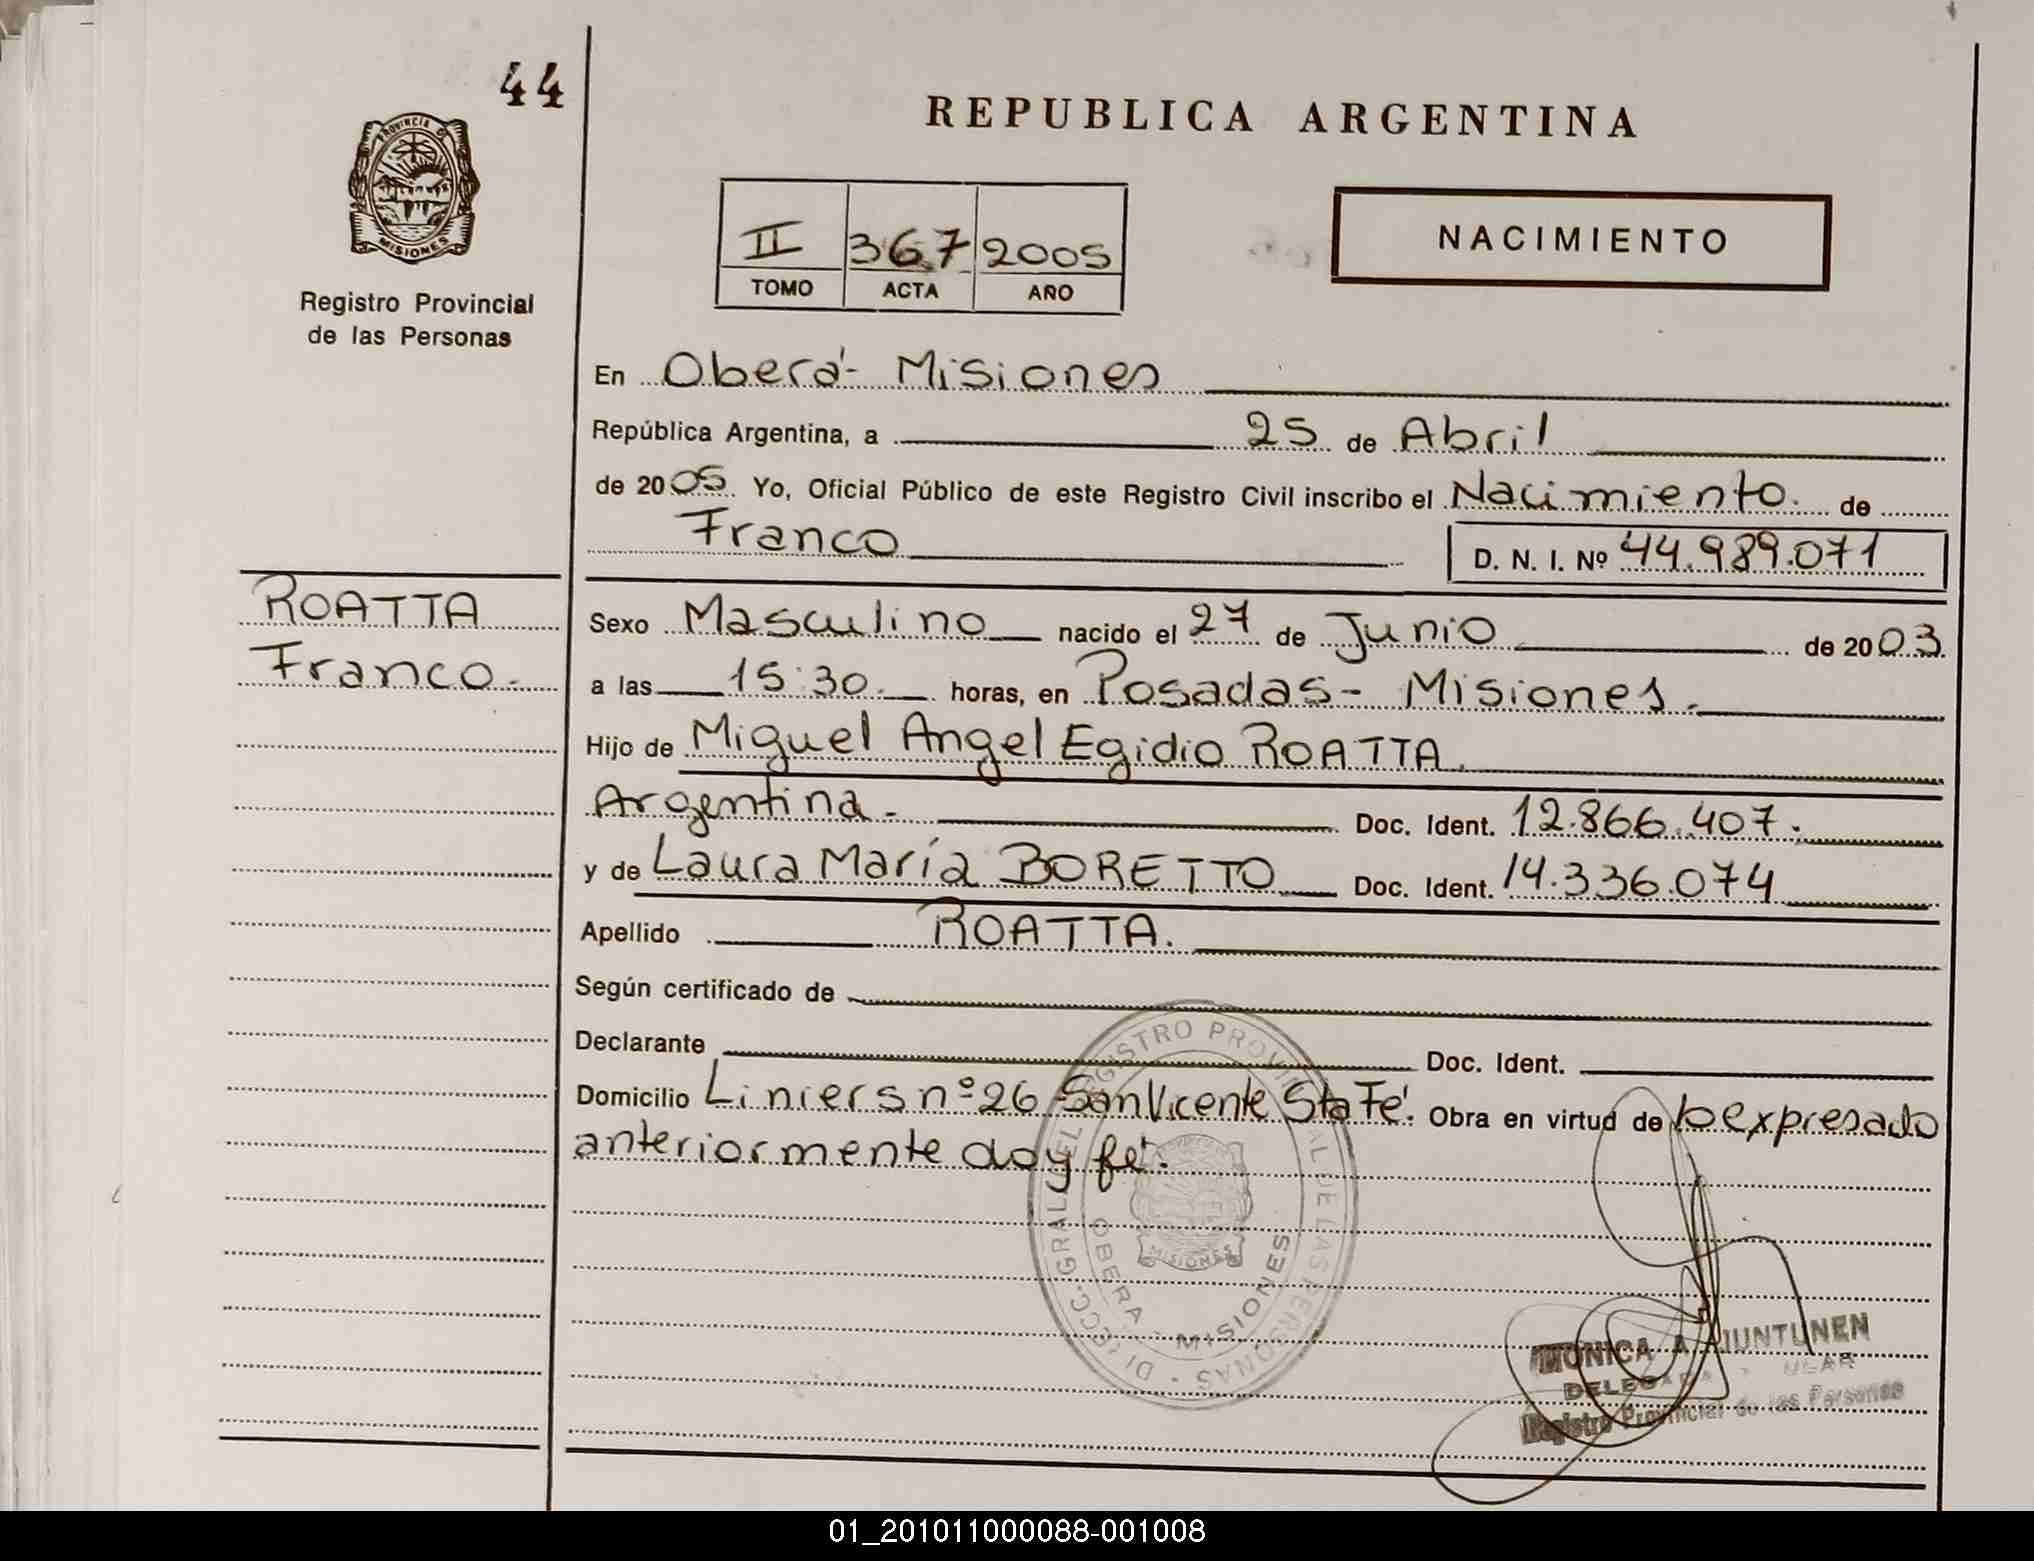 44
PROVINCIA DE
MISIONES
Registro Provincial
de las Personas
REPUBLICA ARGENTINA
II 367 2005
TOMO ACTA AÑO
NACIMIENTO
En Oberá - Misiones
República Argentina, a 25 de Abril
de 2005. Yo, Oficial Público de este Registro Civil inscribo el Nacimiento. de
Franco
D. N. I. Nº 44.989.071
ROATTA
Franco.-
Sexo Masculino nacido el 27 de Junio de 2003.
a las 15:30. horas, en Posadas - Misiones.-
Hijo de Miguel Angel Egidio ROATTA.
Argentina.- Doc. Ident. 12.866.407.
y de Laura María BORETTO Doc. Ident. 14.336.074
Apellido ROATTA.
Según certificado de
Declarante Doc. Ident.
Domicilio Liniers nº 26 San Vicente Sta Fé. Obra en virtud de lo expresado
anteriormente doy fé.
GRAL DEL REGISTRO PROVINCIAL DE LAS PERSONAS
OBERA - MISIONES
MISIONES
MONICA A
Registro Provincial de las Personas
01_201011000088-001008